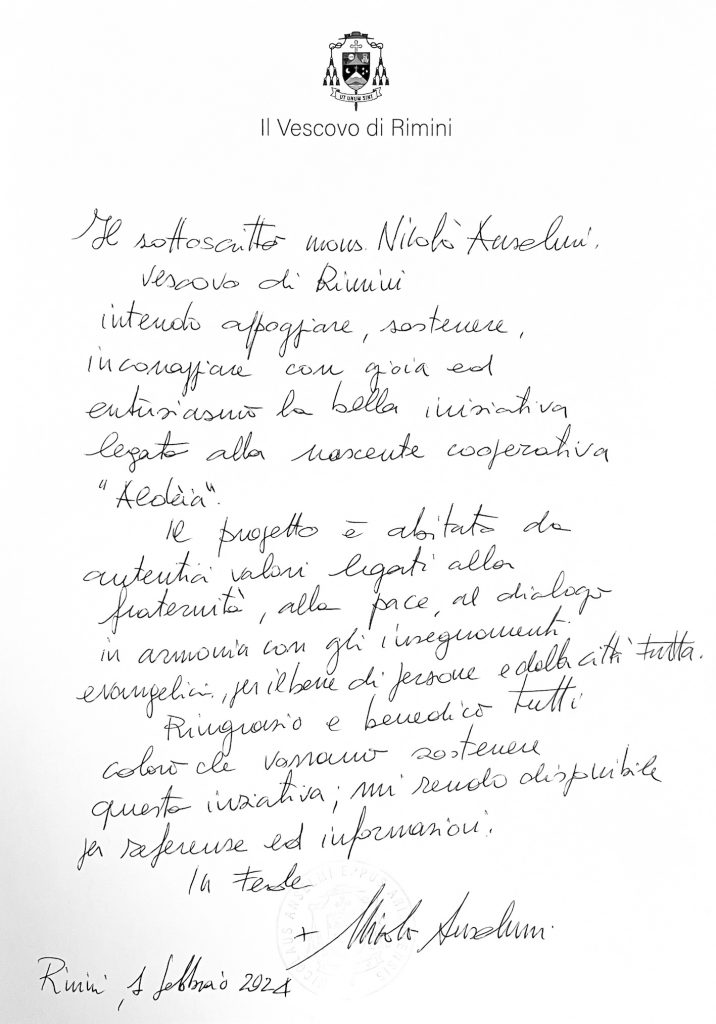 UT UNUM SINT
Il Vescovo di Rimini
Il sottoscritto mons. Nicolò Anselmi,
vescovo di Rimini
intendo appoggiare, sostenere,
incoraggiare con gioia ed
entusiasmo la bella iniziativa
legata alla nascente cooperativa
"Aldèia".
Il progetto è abitato da
autentici valori legati alla
fraternità, alla pace, al dialogo
in armonia con gli insegnamenti
evangelici, per il bene di persone e della città tutta.
Ringrazio e benedico tutti
coloro che vorranno sostenere
questa iniziativa; mi rendo disponibile
per referenze ed informazioni.
In Fede
+ Nicolò Anselmi
Rimini, 1 febbraio 2024